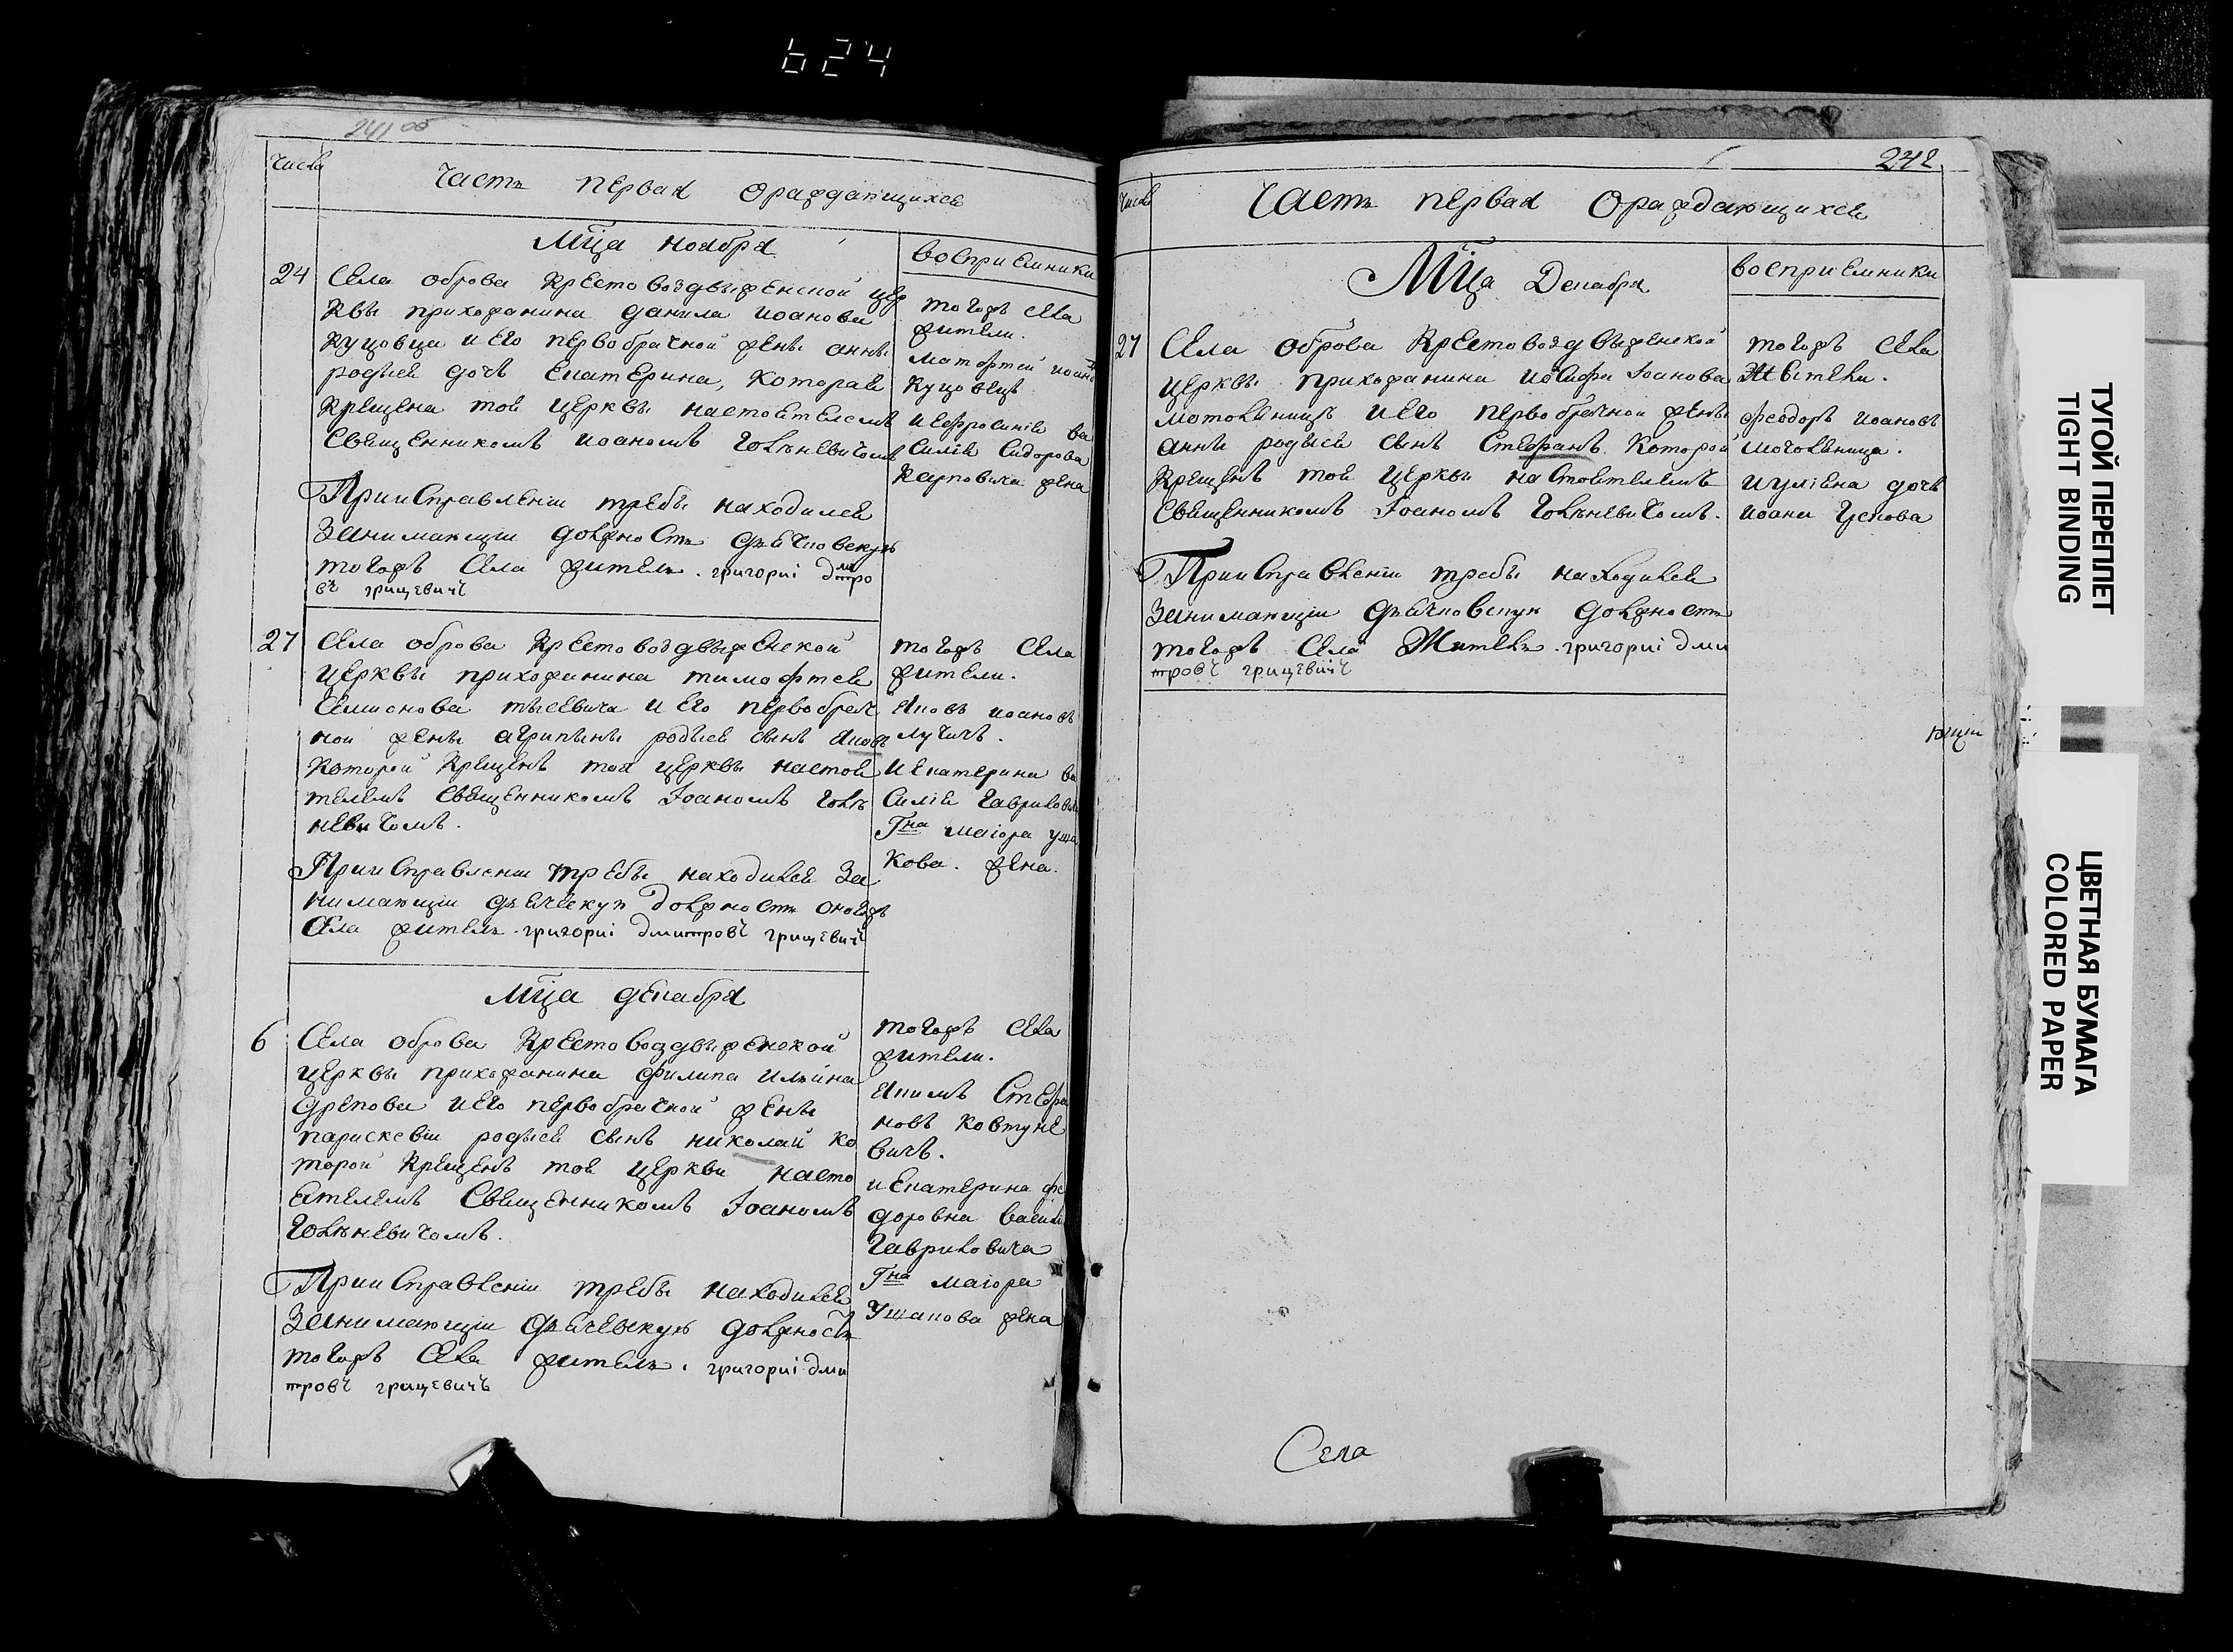 624
241 об
числа
Часть первая ораждающихся
Мца ноября
восприемники
24
Села оброва Крестовоздвыженской цер
квы прихожанина данила иоанова
куцовца и его первобрачной жены анны
родыся дочъ екатерина, которая
крещена тоя церквы настоятелемъ
священникомъ иоаномъ
Прии справленіи требы находился
занимающіи должность
тогожъ села житель. григориі дмитро
въ грицевичъ
тогожъ села
жители.
иоано
куцовецъ
и ефросиніа ва
силія сидорова
карповича жена
27
Села оброва Крестовоздвыженской
церквы прихожанина тимофтея
семионова и его первобрач
ной жены агрипины родыся сынъ яковъ
которой крещенъ тоя церквы настоя
телемъ священникомъ Iоаномъ
невичомъ.
Прии справленіи требы находился за
нимающіи должность оногожъ
села житель. григориі дмитровъ грицевичъ
тогожъ села
жители.
яковъ иоановъ
лучичъ.
и екатерина ва
силія гаврилови
Гна маіора уша
кова. жена.
Мца декабря
6
Села оброва Крестовоздвыженской
церквы прихожанина филипа ильина
и его первобрачной жены
парискевіи родыся сынъ николай ко
торой крещенъ тоя церкви насто
ятелемъ священникомъ Iоаномъ
невичомъ.
Прии справленіи требы находился
занимающіи должность
тогожъ села житель. григориі дми
тровъ грицевичъ
тогожъ села
жители.
якимъ стефа
новъ ковтуне
вичъ.
и екатерина фе
доровна васили
гавриловича
Гна маіора
Ушакова жена
242
числа
Часть первая ораждающихся
Мца Декабря
восприемники
27
Села оброва Крестовоздвыженской
церквы прихожанина иосифа Iоанова
и его первобрачной жены
анны родыся сынъ Стефанъ. которой
крещенъ тоя церквы настоятелемъ
священникомъ Iоаномъ
Прии справленіи требы находился
занимающіи должность
тогожъ села Житель. григориі дми
тровъ грицевичъ
тогожъ села
Жители.
феодоръ иоановъ
и улiана дочъ
иоана
Села
ТУГОЙ ПЕРЕПЛЕТ
TIGHT BINDING
ЦВЕТНАЯ БУМАГА
COLORED PAPER